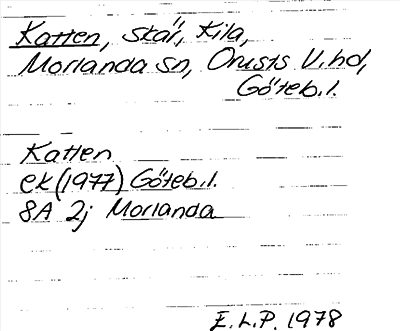 Katten, skär, Kila,
Morlanda sn, Orusts V. hd,
Göteb.l.
Katten
ek (1977) Göteb.l.
8A 2j Morlanda
E.L.P. 1978